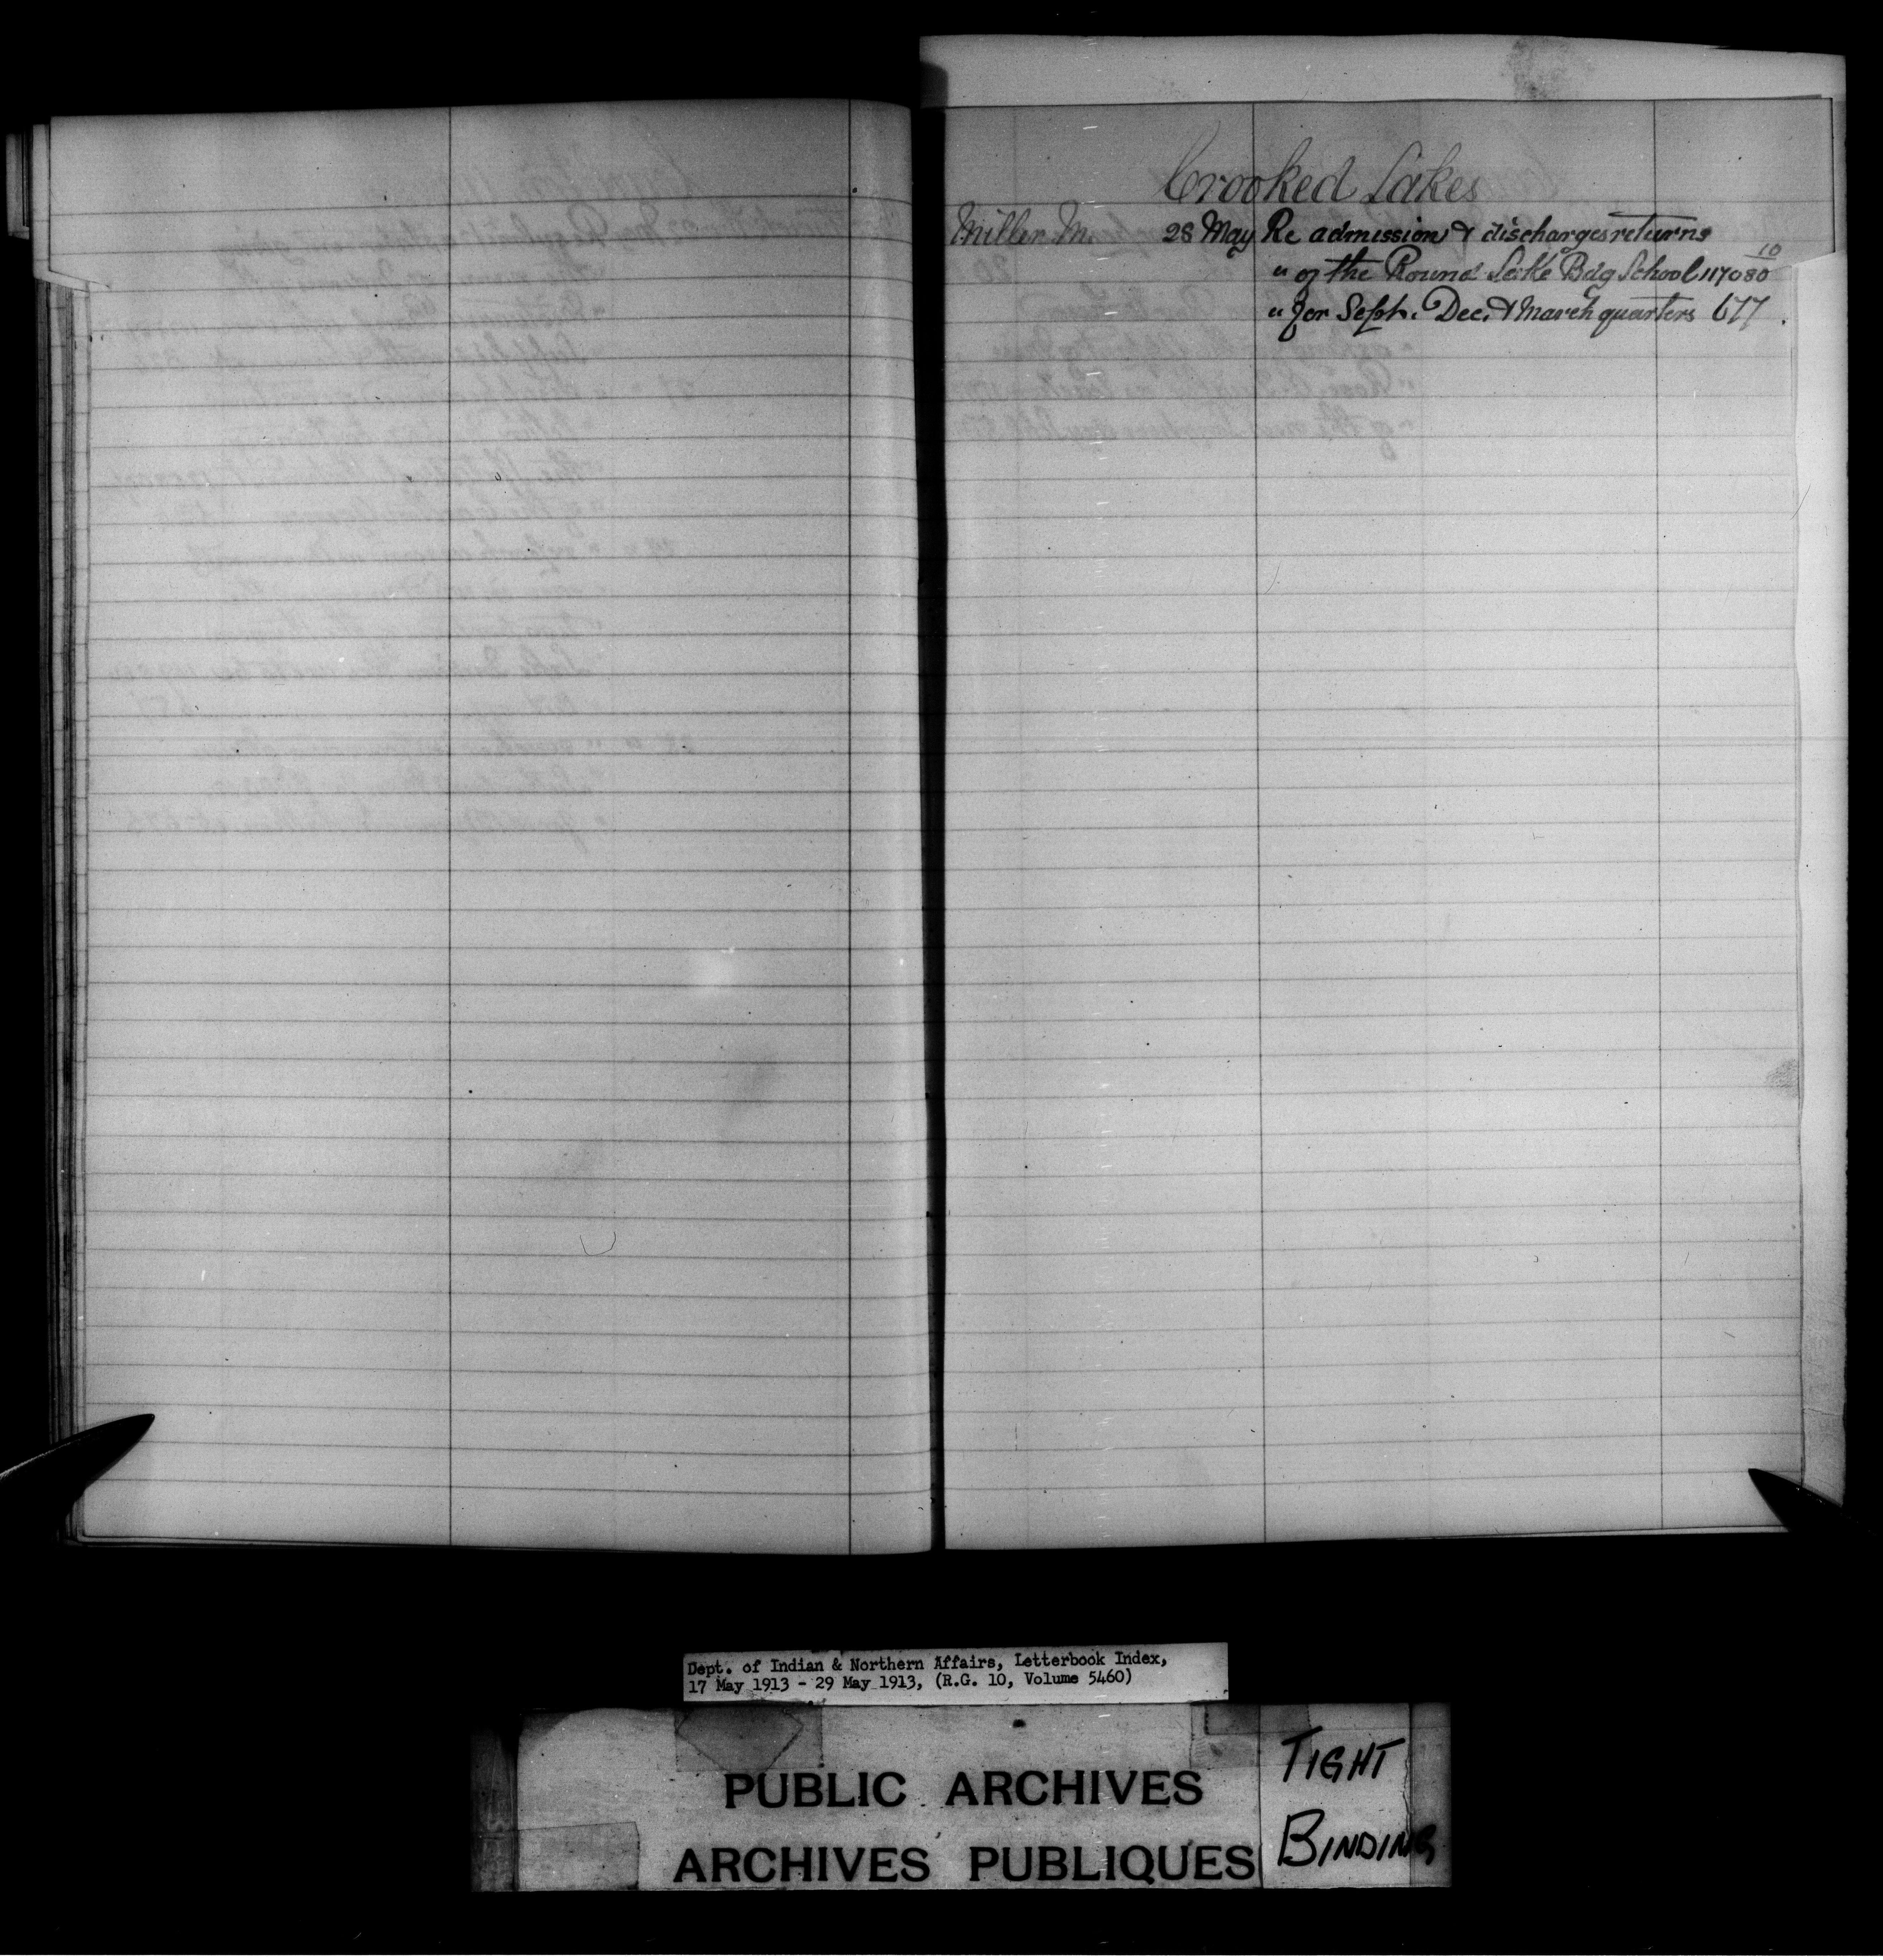 Crooked Lakes
Miller M. 28 May Re admission & discharges returns
" of the Round Lake Bdg School 117080 10
" for Sept. Dec. & March quarters 677
Dept. of Indian & Northern Affairs, Letterbook Index,
17 May 1913 - 29 May 1913, (R.G. 10, Volume 5460)
PUBLIC ARCHIVES
ARCHIVES PUBLIQUES
TIGHT
BINDING